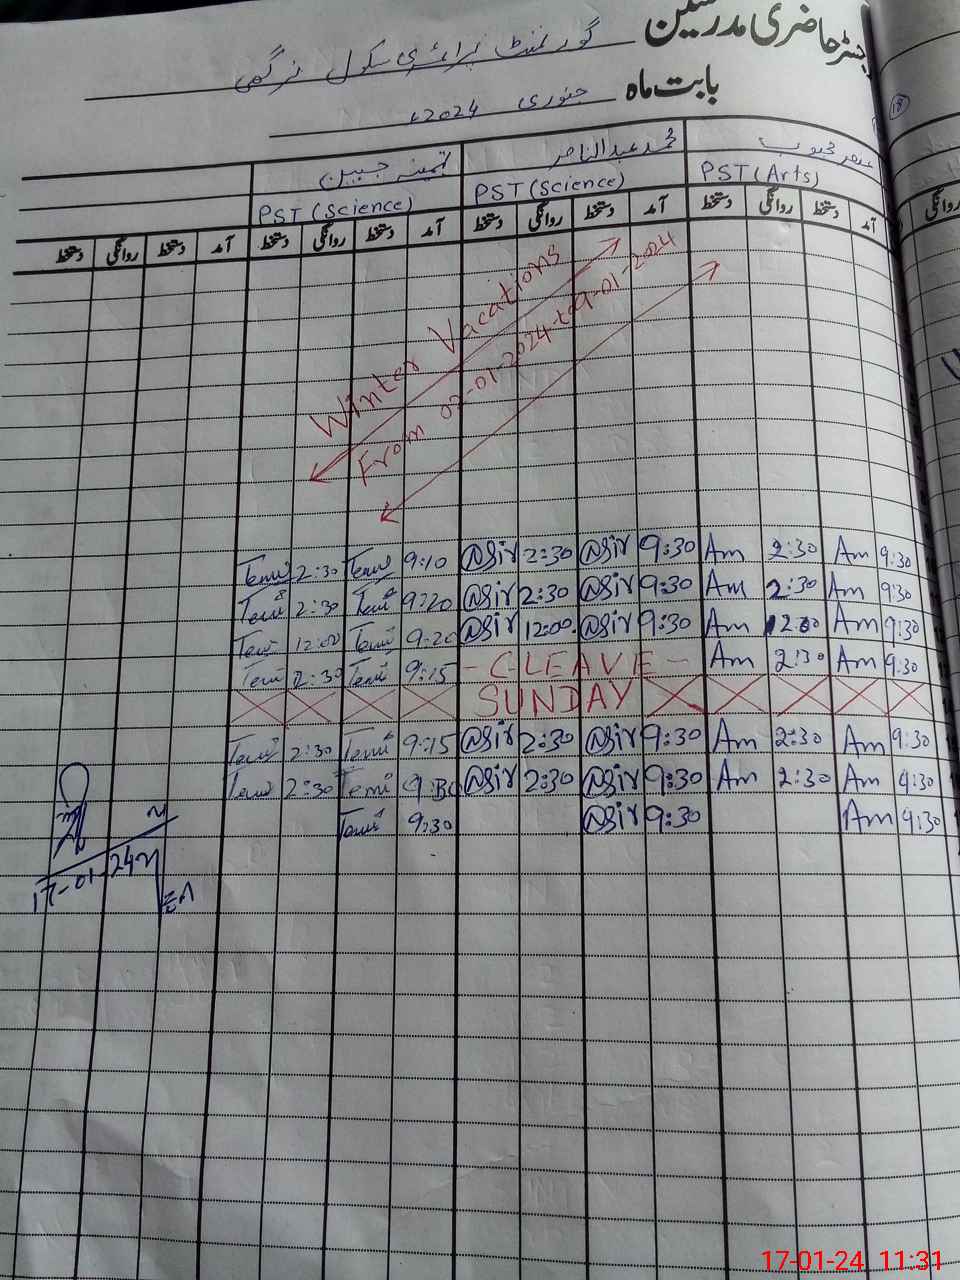 رجسٹر حاضری مدرسین گورنمنٹ پرائمری سکول
بابت ماہ جنوری 2024ء
محمد عبدالناصر ثمینہ جبین
PST (Arts) PST (Science) PST (Science)
آمد دستخط روانگی دستخط آمد دستخط روانگی دستخط آمد دستخط روانگی دستخط آمد دستخط روانگی دستخط
Winter Vacations
From 02-01-2024 to 9-01-2024
2:30 9:10 @Sir 2:30 @Sir 9:30 Am 2:30 Am 9:30
2:30 9:20 @Sir 2:30 @Sir 9:30 Am 2:30 Am 9:30
12:00 9:20 @Sir 12:00 @Sir 9:30 Am 12:00 Am 9:30
2:30 9:15 - C LEAVE - Am 2:30 Am 9:30
SUNDAY
2:30 9:15 @Sir 2:30 @Sir 9:30 Am 2:30 Am 9:30
2:30 9:30 @Sir 2:30 @Sir 9:30 Am 2:30 Am 9:30
9:30 @Sir 9:30 Am 9:30
17-01-24
18
17-01-24 11:31